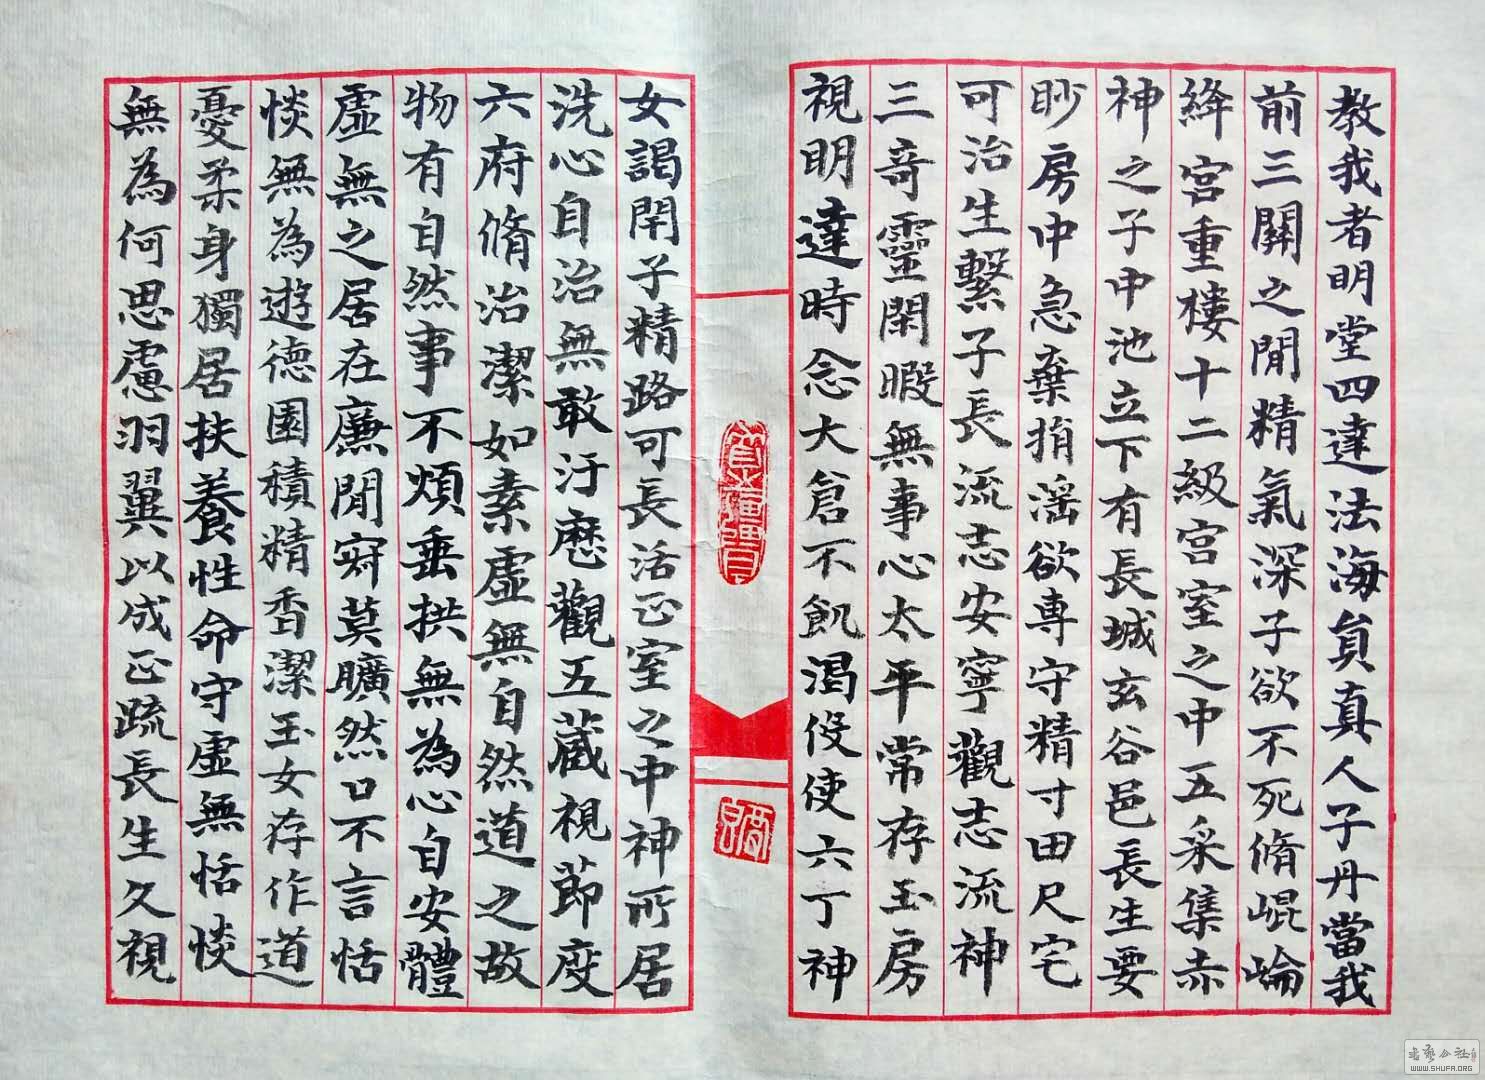 教我者明堂四達法海員真人子丹當我
前三關之閒精氣深子欲不死脩崐崘
絳宮重樓十二級宮室之中五采集赤
神之子中池立下有長城玄谷邑長生要
眇房中急棄捐滛欲専守精寸田尺宅
可治生繫子長流志安寧觀志流神
三竒靈閑暇無事心太平常存玉房
視明達時念大倉不飢渴伇使六丁神
女謁閇子精路可長活正室之中神所居
洗心自治無敢汙歷觀五蔵視節度
六府脩治潔如素虛無自然道之故
物有自然事不煩垂拱無為心自安體
虛無之居在廉閒寂莫曠然口不言恬
惔無為遊德園積精香潔玉女存作道
憂柔身獨居扶養性命守虛無恬惔
無為何思慮羽翼以成正疏長生久視
WWW.SHUFA.ORG